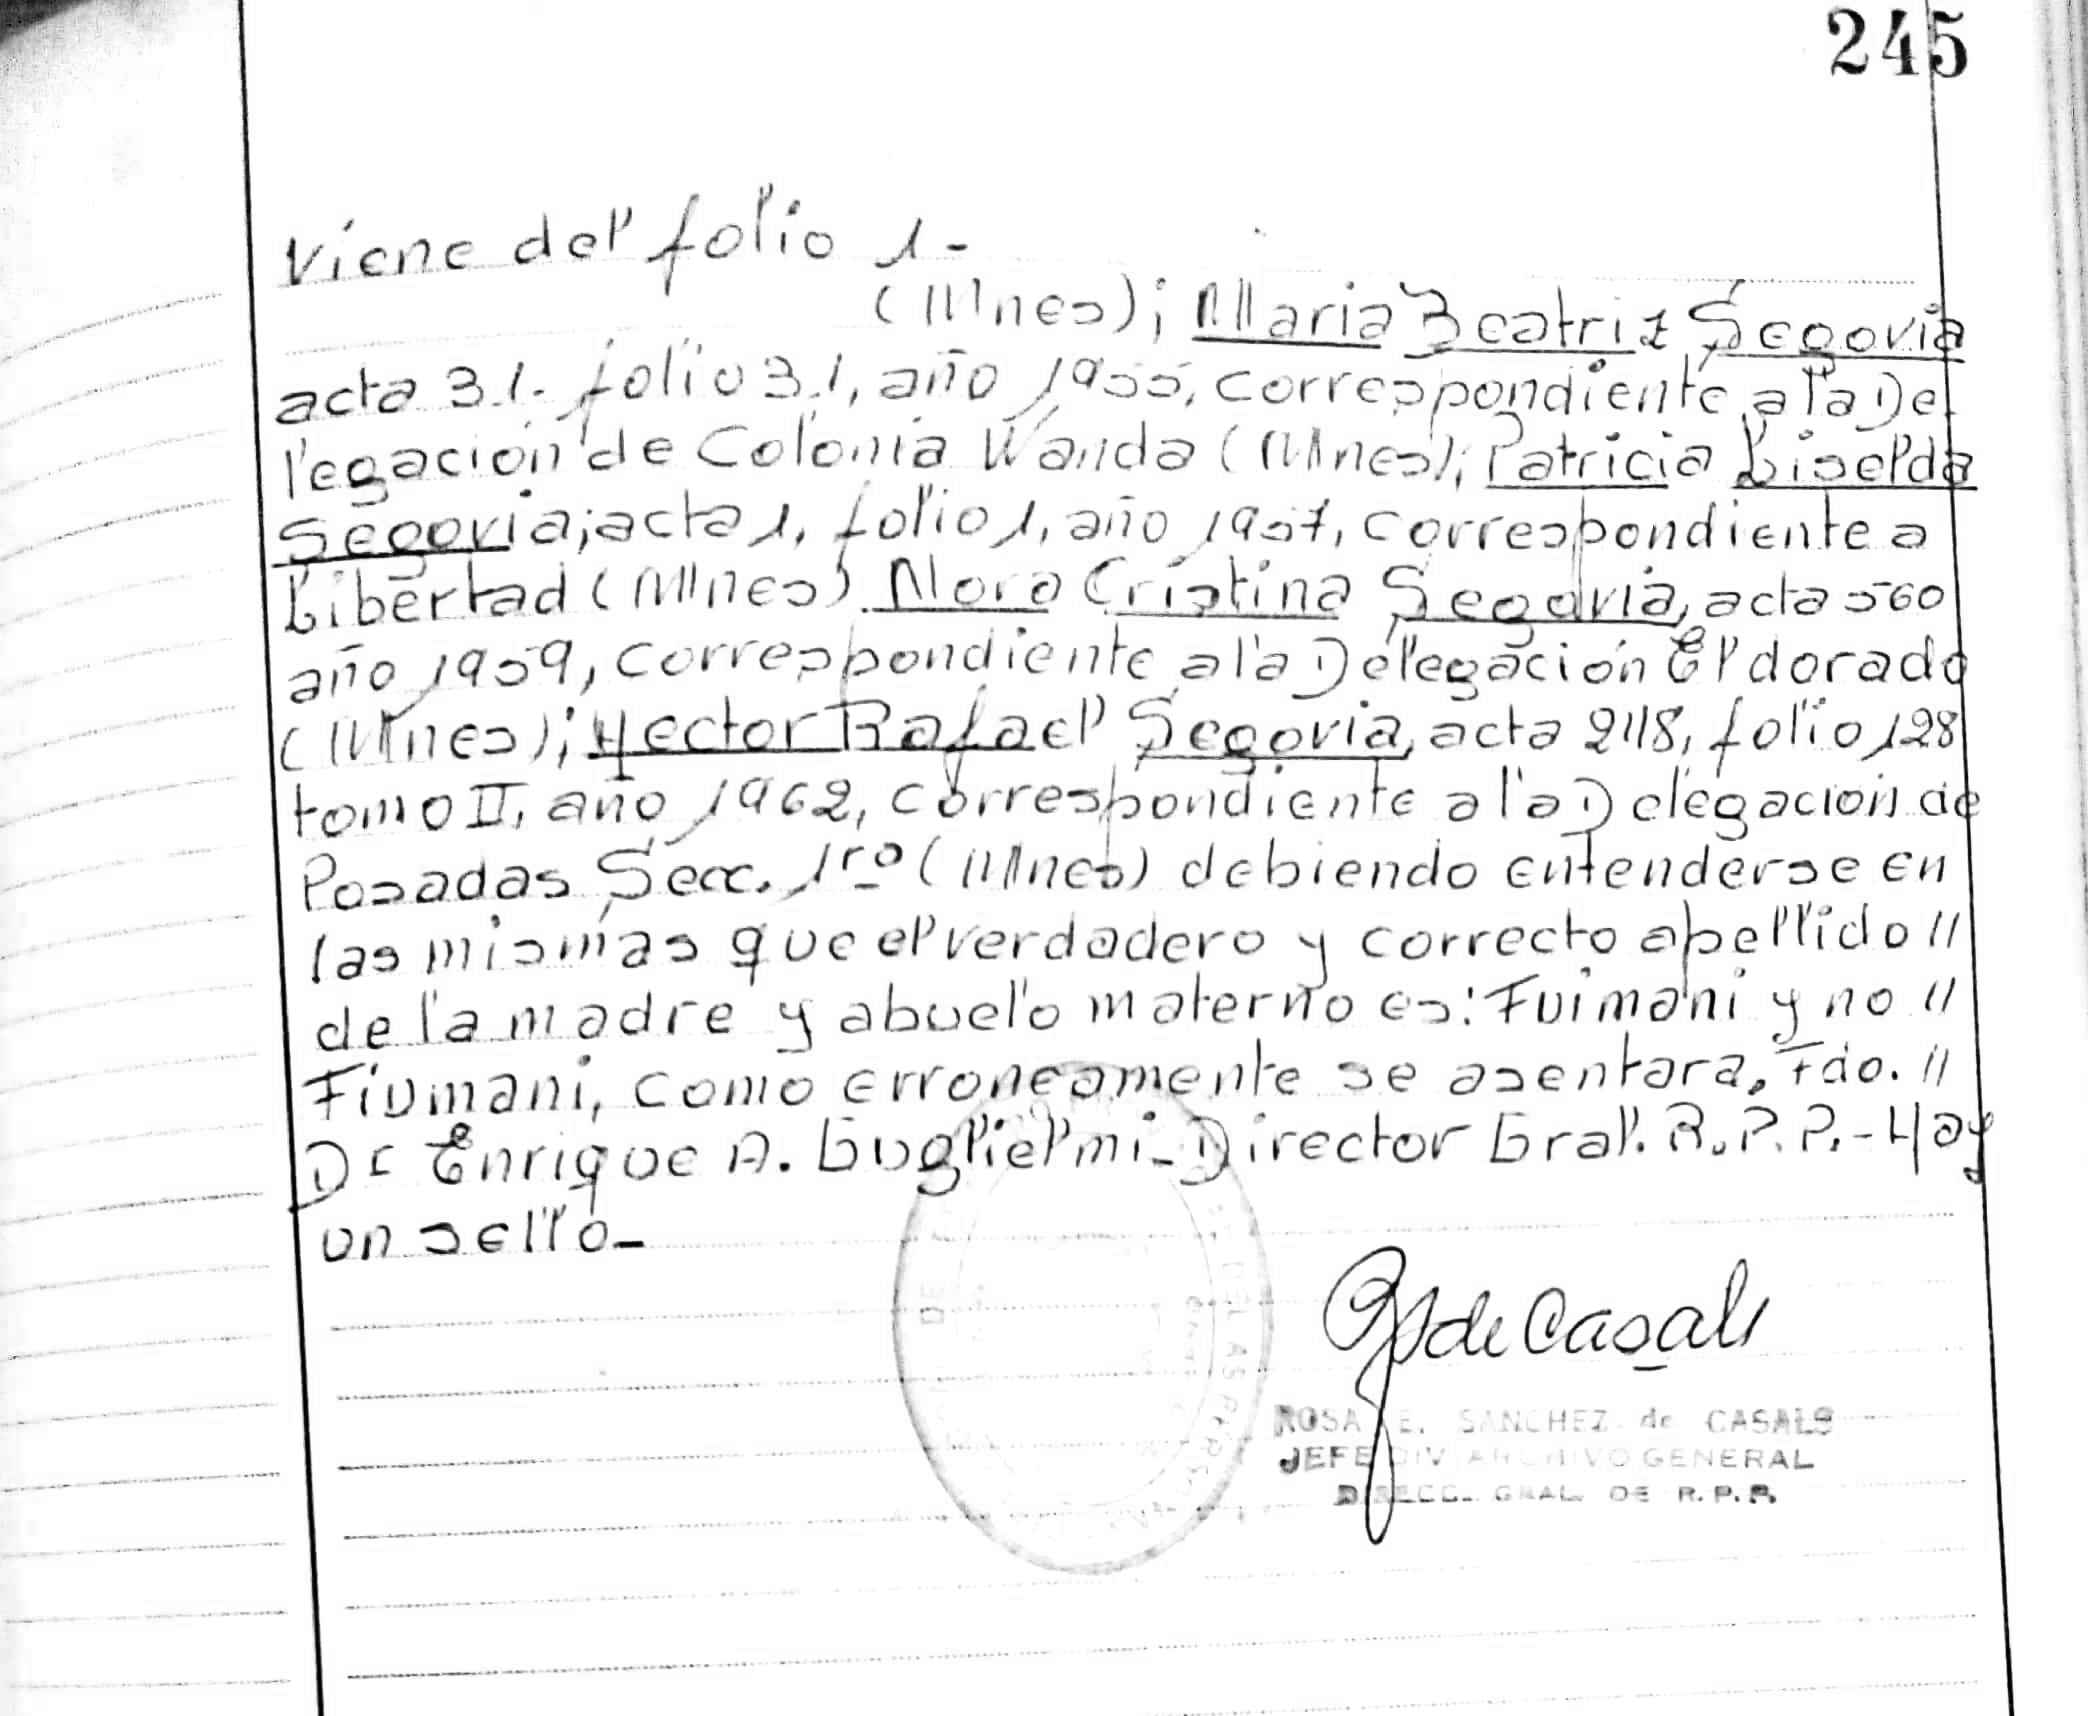 245
Viene del folio 1-
(Mnes); Maria Beatriz Segovia
acta 31. folio 31, año 1955, correspondiente a la De
legación de Colonia Wanda (Mnes); Patricia Liselda
Segovia; acta 1, folio 1, año 1957, correspondiente a
Libertad (Mnes). Nora Cristina Segovia, acta 560
año 1959, correspondiente a la Delegación Eldorado
(Mnes); Hector Rafael Segovia, acta 2118, folio 128
tomo II, año 1962, correspondiente a la Delegación de
Posadas Secc. 1ra (Mnes) debiendo entenderse en
las mismas que el verdadero y correcto apellido //
de la madre y abuelo materno es: Fuimani y no //
Fiumani, como erroneamente se asentara. Fdo. //
Dr Enrique A. Guglielmi - Director Gral. R.P.P. - Hay
un sello -
de Casals
ROSA E. SANCHEZ de CASALS
JEFE DIV ARCHIVO GENERAL
DIRECC. GRAL. DE R.P.P.